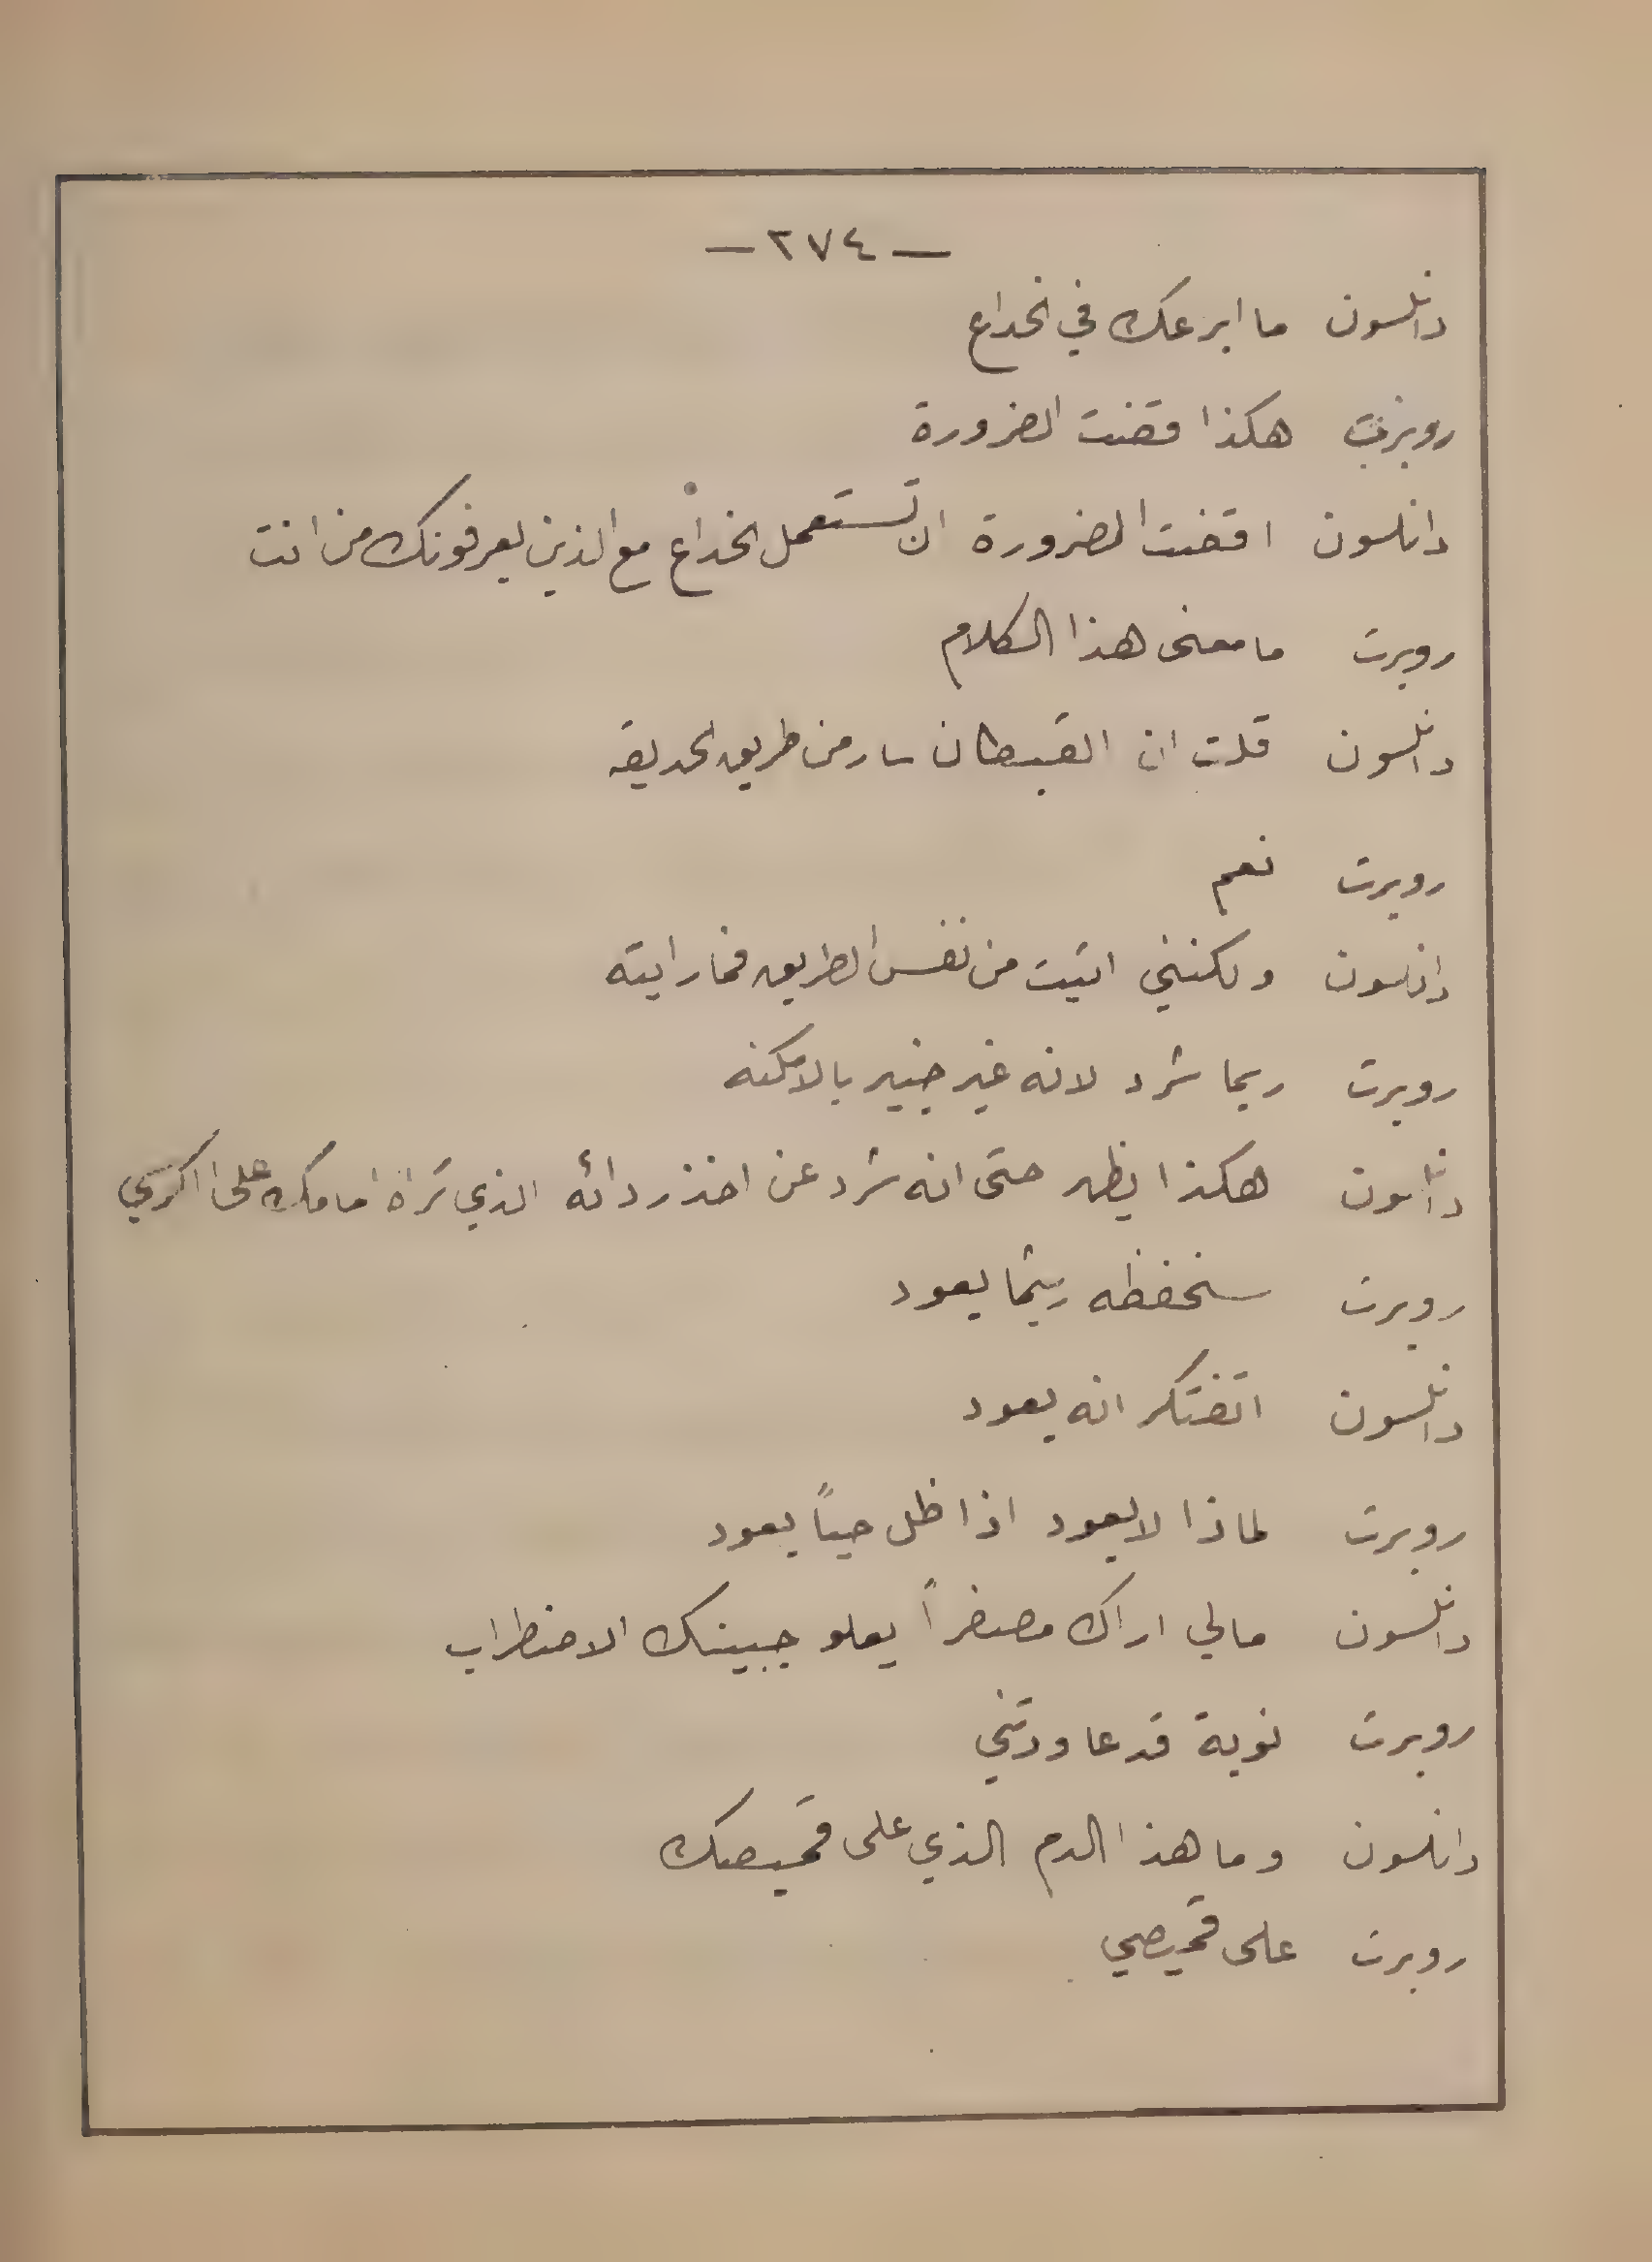 — ٢٧٤ —
دانلسون ما ابرعك في الخداع
روبرت هكذا قضت الضرورة
دانلسون اقضت الضرورة ان تستعمل الخداع مع الذين يعرفونك من انت
روبرت ما معنى هذا الكلام
دانلسون قلت ان القبطان سار من طريق الحديقه
روبرت نعم
دانلسون ولكنني اتيت من نفس الطريق فما رايته
روبرت ربما شرد لانه غير خبير بالامكنه
دانلسون هكذا يظهر حتى انه شرد عن اخذ ردائه الذي تراه امامك على الكرسي
روبرت سنحفظه ريثما يعود
دانلسون اتفتكر انه يعود
روبرت لماذا لا يعود اذا ظل حياً يعود
دانلسون مالي اراك مصفراً يعلو جبينك الاضطراب
روبرت نوبة قد عاودتني
دانلسون وما هذا الدم الذي على قميصك
روبرت على قميصي